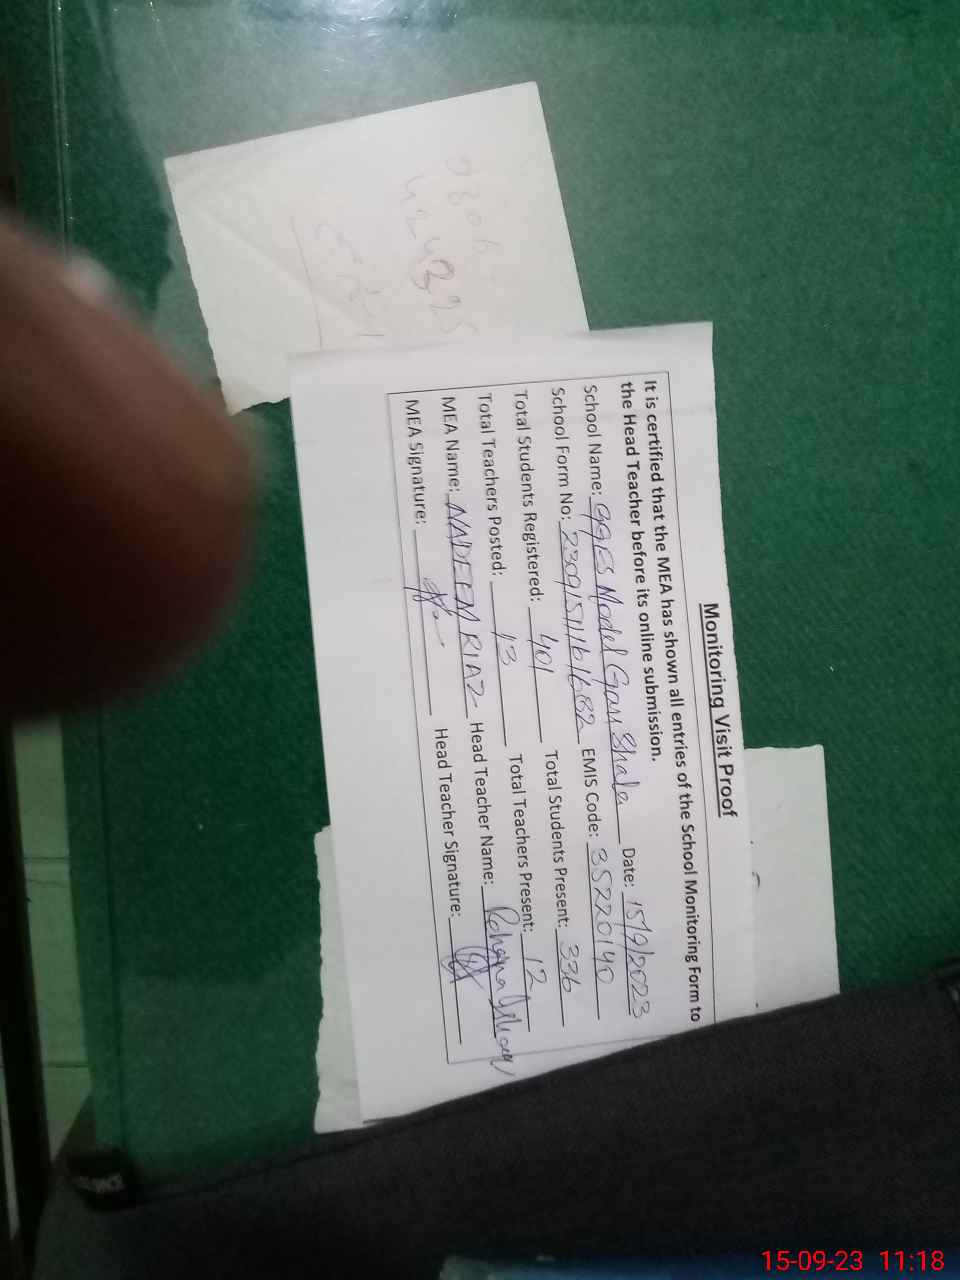 Monitoring Visit Proof
It is certified that the MEA has shown all entries of the School Monitoring Form to
the Head Teacher before its online submission.
School Name: GGES Model Gau Shala Date: 15/9/2023
School Form No: 2309151161682 EMIS Code: 35220140
Total Students Registered: 401 Total Students Present: 336
Total Teachers Posted: 13 Total Teachers Present: 12
MEA Name: NADEEM RIAZ Head Teacher Name: Rehana
MEA Signature: Head Teacher Signature:
15-09-23 11:18